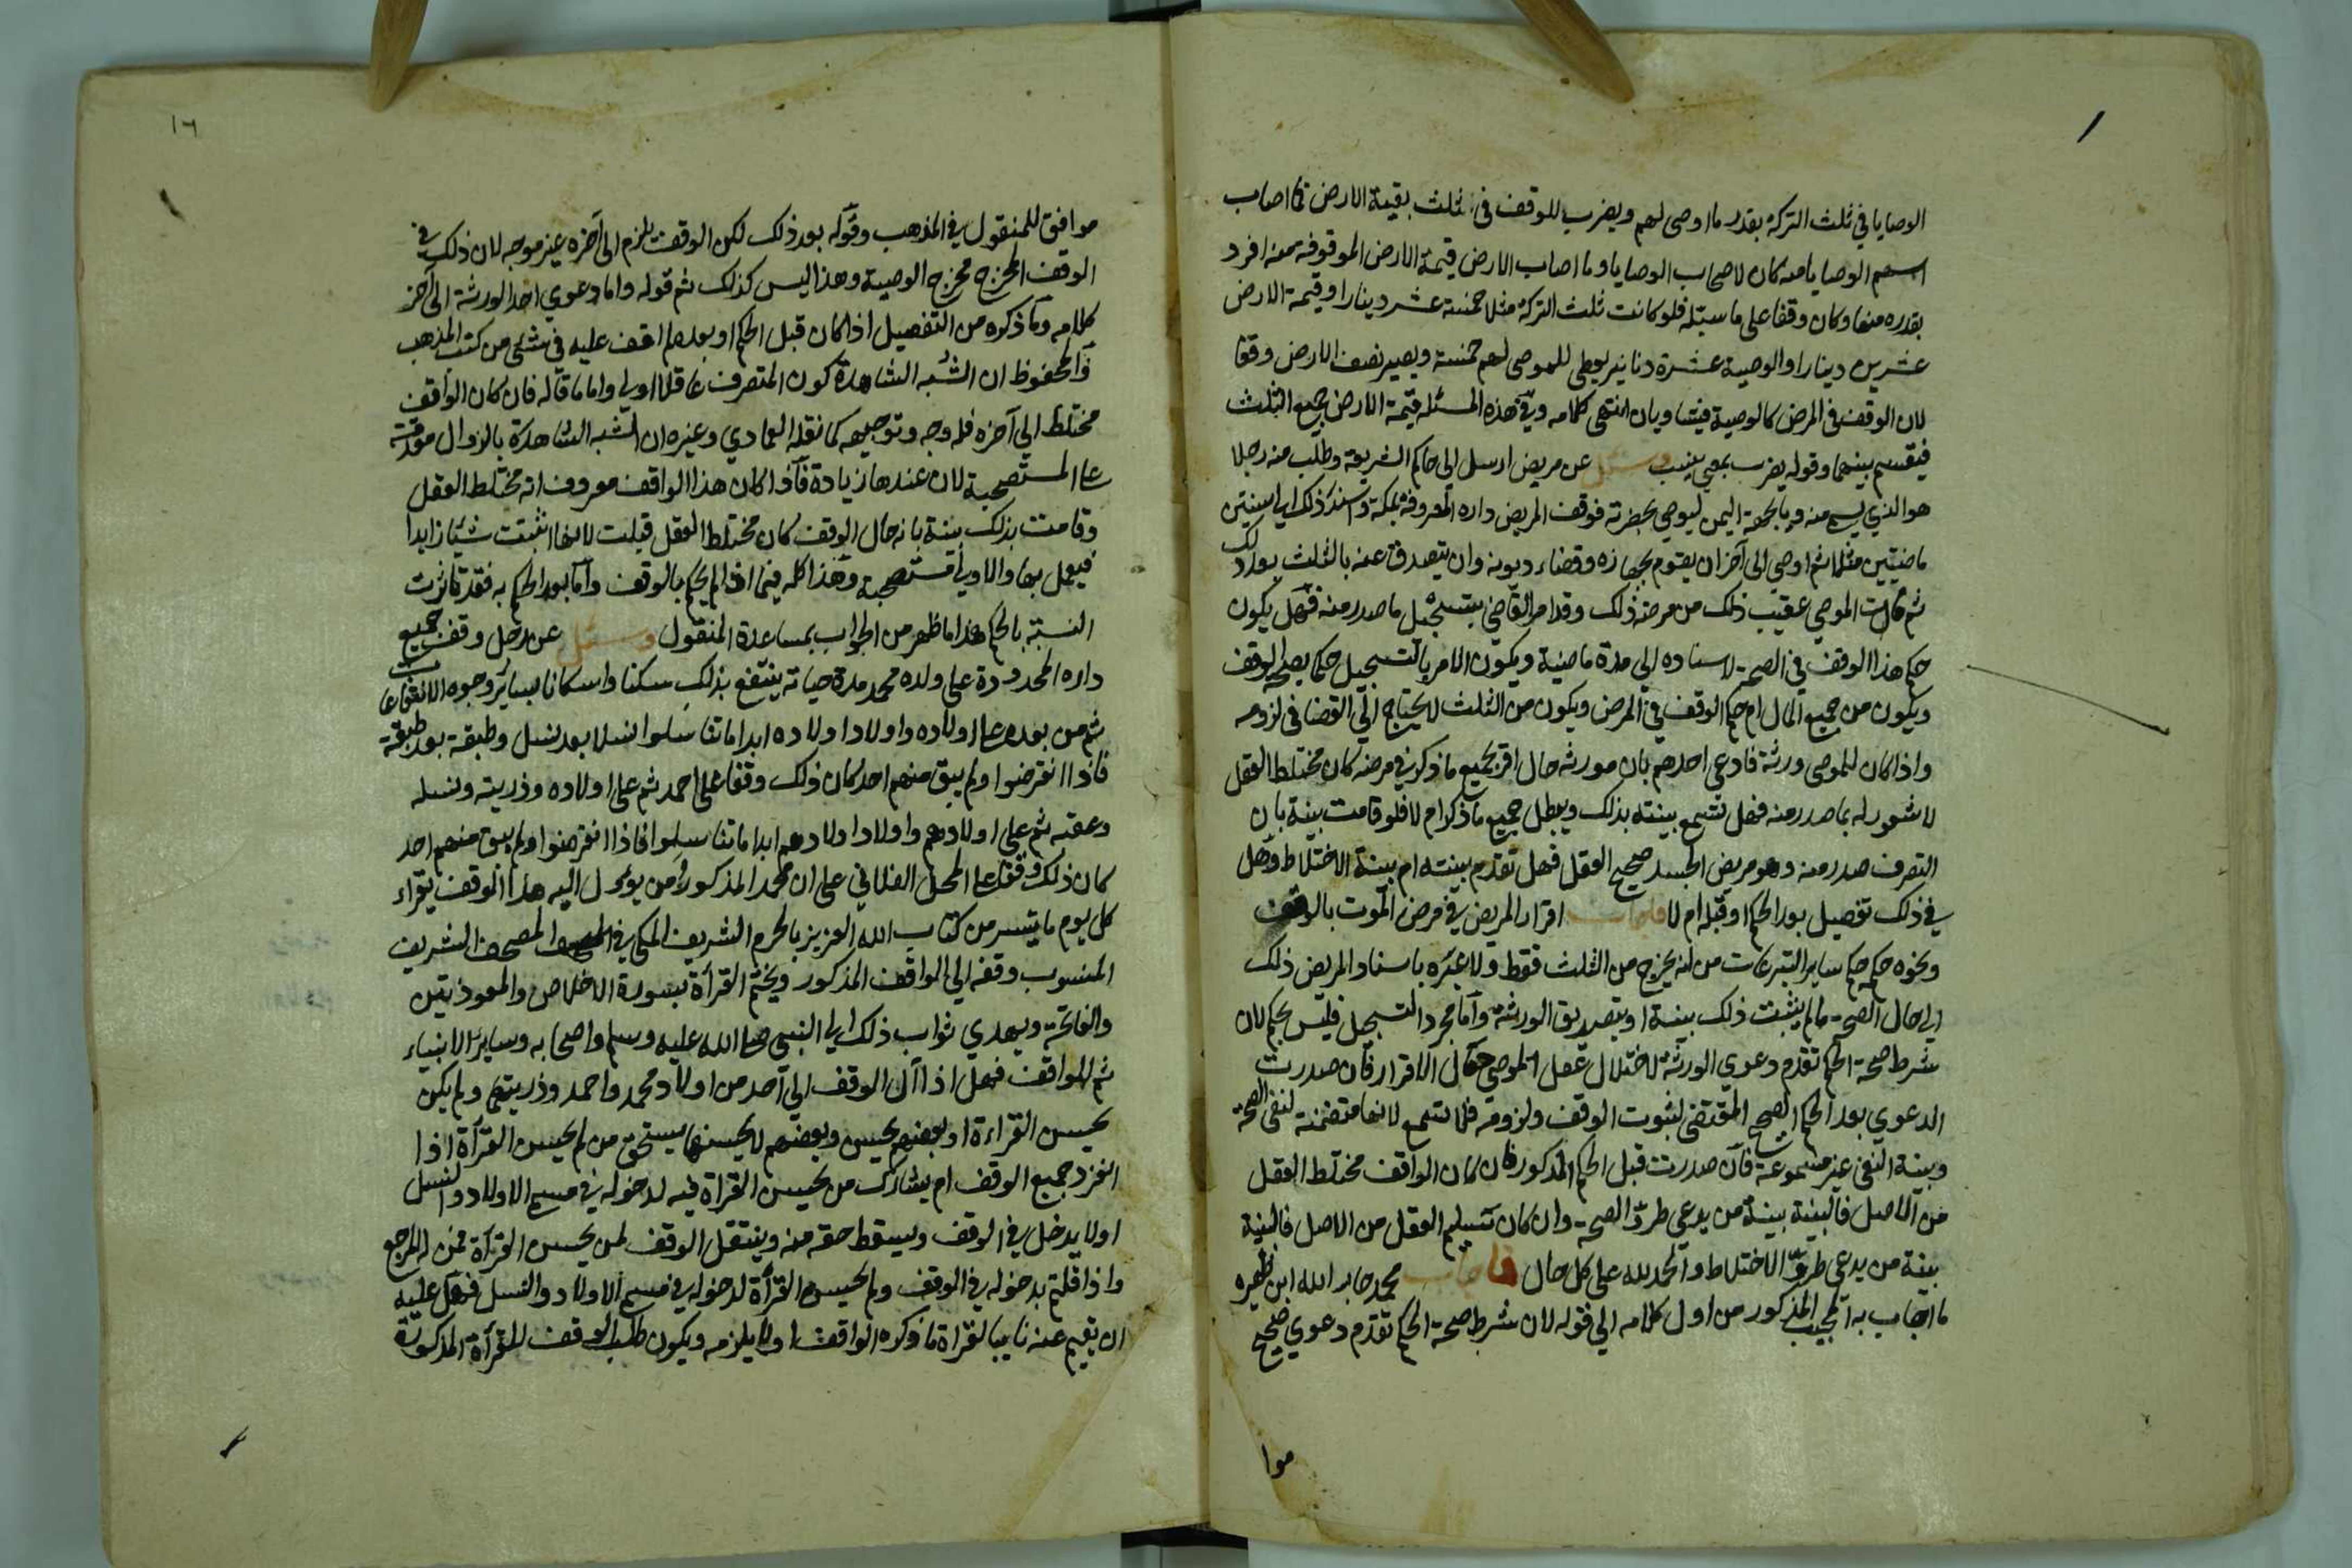 الوصايا في ثلث التركة بقدر ما اوصى لهم ويضرب للوقف في ثلث بقية الارض فما اصاب
اسهم الوصايا منه كان لاصحاب الوصايا وما اصاب الارض قيمة الارض الموقوفة منه افرد
بقدره منها وكان وقفا على ما سبله فلو كانت ثلث التركة مثلا خمسة عشر دينارا وقيمة الارض
عشرين دينارا والوصية عشرة دنانير يعطى للموصى لهم خمسة ويصير نصف الارض وقفا
لان الوقف في المرض كالوصية فيتساويان انتهى كلامه وفي هذه المسئلة قيمة الارض جميع الثلث
فيقسم بينهما وقوله يضرب بمعنى ينسب وسئل عن مريض ارسل الى حاكم الشريعة وطلب منه رجلا
هو الذي يسمع منه وبالجهة اليمن ليوصي بحضرته فوقف المريض داره المعروفة بملكه واسند ذلك الى سنتين
ماضيتين مثلا ثم اوصى الى آخر ان يقوم بجهازه وقضاء ديونه وان يتصدق عنه بالثلث بعد ذلك
ثم مات الموصي عقيب ذلك من مرضه ذلك وقد امر القاضي بتسجيل ما صدر منه فهل يكون
حكم هذا الوقف في الصحة لاسناده الى مدة ماضية ويكون الامر بالتسجيل حكما بصحة الوقف
ويكون من جميع المال ام حكم الوقف في المرض ويكون من الثلث لا يحتاج الى القضا في لزومه
واذا كان للموصي ورثة فادعى احدهم بان مورثه حال اقر بجميع ما ذكر في مرضه كان مختلط العقل
لا شعور له بما صدر منه فهل تسمع بينته بذلك ويبطل جميع ما ذكر ام لا فلو قامت بينة بان
التصرف صدر منه وهو مريض الجسد صحيح العقل فهل تقدم بينته ام بينة الاختلاط وهل
في ذلك تفصيل بعد الحكم او قبله ام لا فاجاب اقرار المريض في مرض الموت بالوقف
ونحوه حكمه حكم ساير التبرعات من انه يخرج من الثلث فقط ولا عبرة باسناد المريض ذلك
الى حال الصحة ما لم يثبت ذلك ببينة او بتصديق الورثة واما مجرد التسجيل فليس بحكم لان
شرط صحة الحكم تقدم دعوي الورثة لاختلال عقل الموصي حال الاقرار فان صدرت
الدعوي بعد الحكم الصحيح المقتضى لثبوت الوقف ولزومه فلا تسمع لانها متضمنة لنفي الصحة
وبينة النفي غير مسموعة فان صدرت قبل الحكم المذكور فان كان الواقف مختلط العقل
من الاصل فالبينة بينة من يدعي طرو الصحة وان كان سليم العقل من الاصل فالبينة
بينة من يدعي طرو الاختلاط والحمد لله على كل حال فاجاب محمد جار الله ابن ظهيره
ما اجاب به المجيب المذكور من اول كلامه الى قوله لان شرط صحة الحكم تقدم دعوي صحيح
موا
١٦
موافق للمنقول في المذهب وقوله بعد ذلك لكن الوقف يلزم الى آخره غير موجه لان ذلك في
الوقف المخرج مخرج الوصية وهذا ليس كذلك ثم قوله واما دعوي احد الورثة الى آخر
كلامه وما ذكره من التفصيل اذا كان قبل الحكم او بعده لم اقف عليه في شئ من كتب المذهب
والمحفوظ ان الشبه الشاهدة كون المتصرف عاقلا اولي واما ما قاله فان كان الواقف
مختلط الى آخره فله وجه وتوجيهه كما نقله العمادي وغيره ان الشبه الشاهدة بالزوال مقدمة
على المستصحبة لان عندها زيادة فاذا كان هذا الواقف معروف انه مختلط العقل
وقامت بذلك بينة بانه حال الوقف كان مختلط العقل قبلت لانها اثبتت شيئا زايدا
فيعمل بها والاولي مستصحبة وهذا كله فيما اذا لم يحكم بالوقف واما بعد الحكم به فقد تاثرت
النسبة بالحكم هذا ما ظهر من الجواب بمساعدة المنقول وسئل عن رجل وقف جميع
داره المحدودة على ولده محمد مدة حياته ينتفع بذلك سكنا واسكانا لساير وجوه الانتفاعات
ثم من بعده على اولاده واولاد اولاده ابدا ما تناسلوا نسلا بعد نسل وطبقة بعد طبقة
فاذا انقرضوا ولم يبق منهم احد كان ذلك وقفا على احمد ثم على اولاده وذريته ونسله
وعقبه ثم على اولادهم واولاد اولادهم ابدا ما تناسلوا فاذا انقرضوا ولم يبق منهم احد
كان ذلك وقفا على المحل الفلاني على ان محمد المذكور ومن يؤول اليه هذا الوقف يقراء
كل يوم ما تيسر من كتاب الله العزيز بالحرم الشريف المكي في المصحف الشريف
المنسوب وقفه الى الواقف المذكور ويختم القرأة بسورة الاخلاص والمعوذتين
والفاتحة ويهدي ثواب ذلك الى النبي صلى الله عليه وسلم واصحابه وساير الانبياء
ثم للواقف فهل اذا آل الوقف الى آحد من اولاد محمد واحمد وذريتهم ولم يكن
يحسن القراءة او بعضهم يحسن وبعضهم لا يحسنها يستحق من لم يحسن القرأة اذا
انفرد جميع الوقف ام يشارك من يحسن القراة فيه لدخوله في مسمى الاولاد والنسل
اولا يدخل في الوقف ويسقط حقه منه وينتقل الوقف لمن يحسن القرأة ممن له المرجع
واذا قلتم بدخوله في الوقف ولم يحسن القرأة لدخوله في مسمى الاولاد والنسل فهل عليه
ان يقيم عنه نايبا لقراة ما ذكره الواقف اولا يلزمه ويكون طلب الوقف للقرأة المذكورة